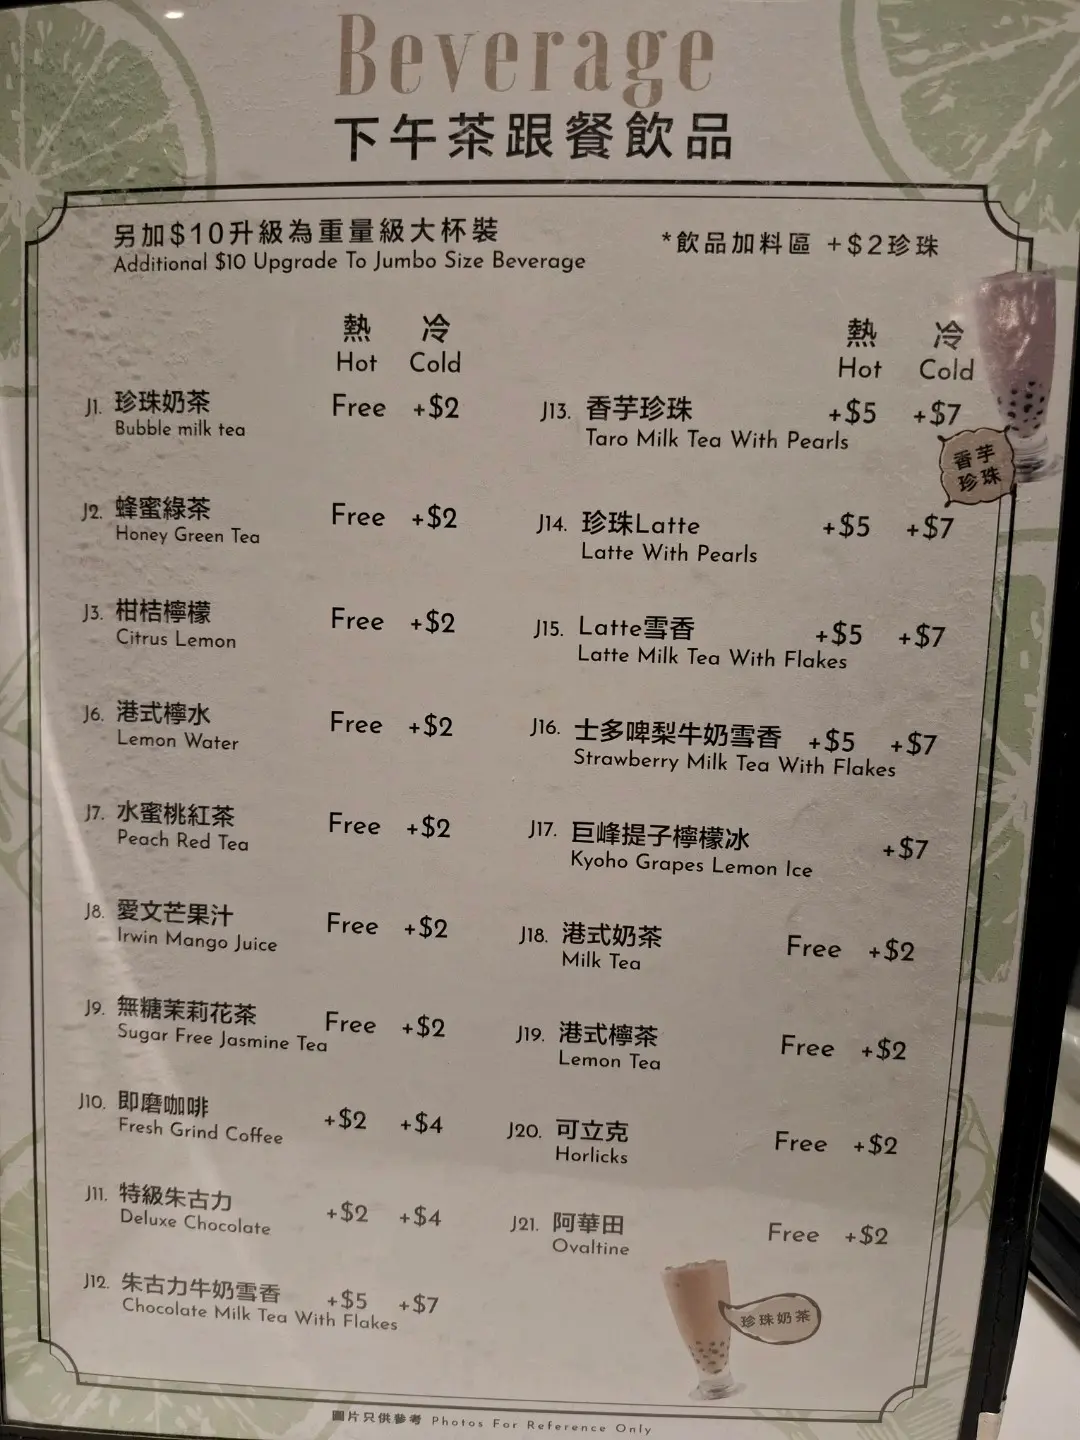 Beverage
下午茶跟餐飲品
另加$10升級為重量級大杯裝
Additional $10 Upgrade To Jumbo Size Beverage
*飲品加料區 +$2珍珠
熱 冷
Hot Cold
J1. 珍珠奶茶 Free +$2
Bubble milk tea
J2. 蜂蜜綠茶 Free +$2
Honey Green Tea
J3. 柑桔檸檬 Free +$2
Citrus Lemon
J6. 港式檸水 Free +$2
Lemon Water
J7. 水蜜桃紅茶 Free +$2
Peach Red Tea
J8. 愛文芒果汁 Free +$2
Irwin Mango Juice
J9. 無糖茉莉花茶 Free +$2
Sugar Free Jasmine Tea
J10. 即磨咖啡 +$2 +$4
Fresh Grind Coffee
J11. 特級朱古力 +$2 +$4
Deluxe Chocolate
J12. 朱古力牛奶雪香 +$5 +$7
Chocolate Milk Tea With Flakes
熱 冷
Hot Cold
J13. 香芋珍珠 +$5 +$7
Taro Milk Tea With Pearls
香芋
珍珠
J14. 珍珠Latte +$5 +$7
Latte With Pearls
J15. Latte雪香 +$5 +$7
Latte Milk Tea With Flakes
J16. 士多啤梨牛奶雪香 +$5 +$7
Strawberry Milk Tea With Flakes
J17. 巨峰提子檸檬冰 +$7
Kyoho Grapes Lemon Ice
J18. 港式奶茶 Free +$2
Milk Tea
J19. 港式檸茶 Free +$2
Lemon Tea
J20. 可立克 Free +$2
Horlicks
J21. 阿華田 Free +$2
Ovaltine
珍珠奶茶
圖片只供參考 Photos For Reference Only